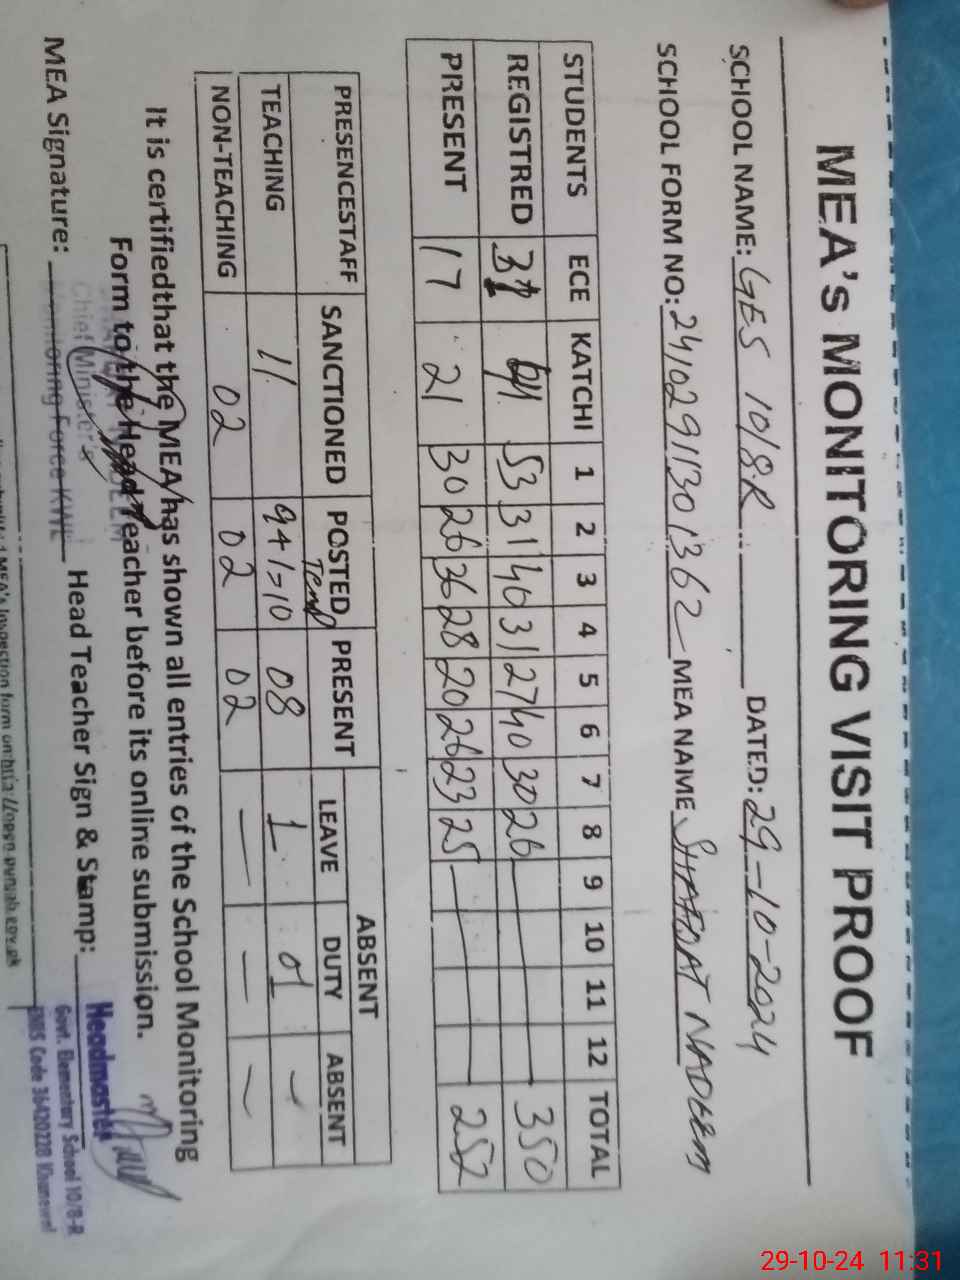 MEA's MONITORING VISIT PROOF
SCHOOL NAME: GES 10/8.R DATED: 29-10-2024
SCHOOL FORM NO: 24102911301362 MEA NAME SHAFQAT NADEEM
STUDENTS ECE KATCHI 1 2 3 4 5 6 7 8 9 10 11 12 TOTAL
REGISTRED 53 31 40 31 27 40 30 26 350
PRESENT 17 21 30 26 36 28 20 26 23 25 252
PRESENCESTAFF SANCTIONED POSTED PRESENT ABSENT
Temp LEAVE DUTY ABSENT
TEACHING 11 9+1=10 08 1 01 -
NON-TEACHING 02 02 02 - - -
It is certifiedthat the MEA has shown all entries of the School Monitoring
Form to the Head Teacher before its online submission.
MEA Signature: Head Teacher Sign & Stamp:
Chief Minister's
Monitoring Force KWL
Headmaster
Govt. Elementary School 10/8-R
EMIS Code 36420228 Khanewal
29-10-24 11:31